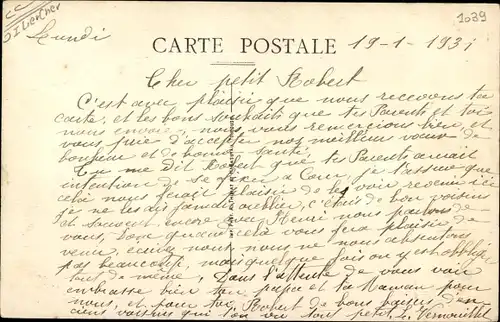 Silbercher
1039
Lundi
CARTE POSTALE
19-1-1931
Cher petit Robert
C'est avec plaisir que nous recevons ta
carte, et les bons souhaits que tes Parents et toi
nous envoie, nous vous remercions bien et
vous prie d'accepter nos meilleurs voeux de
bonheur et de bonne santé
Tu me dit Robert que tes Parents avait
intention de se fixer a Cour, je t'assure que
cela nous ferait plaisir de les voir revenir ici
je ne les ais jamais oublier, c'était de bon voisins
et souvent encore avec Henri nous parlons de
vous, bon quand cela vous fera plaisir de
venir, écrivez nous, nous ne nous absentons
pas beaucoup, mais quelque fois on y est obligé
tout de même, Dans l'attente de vous voir
embrasse bien ton papa et ta Maman pour
nous, et pour toi Robert de bons baisers d'an
ciens voisins qui t'on vu tout petit,